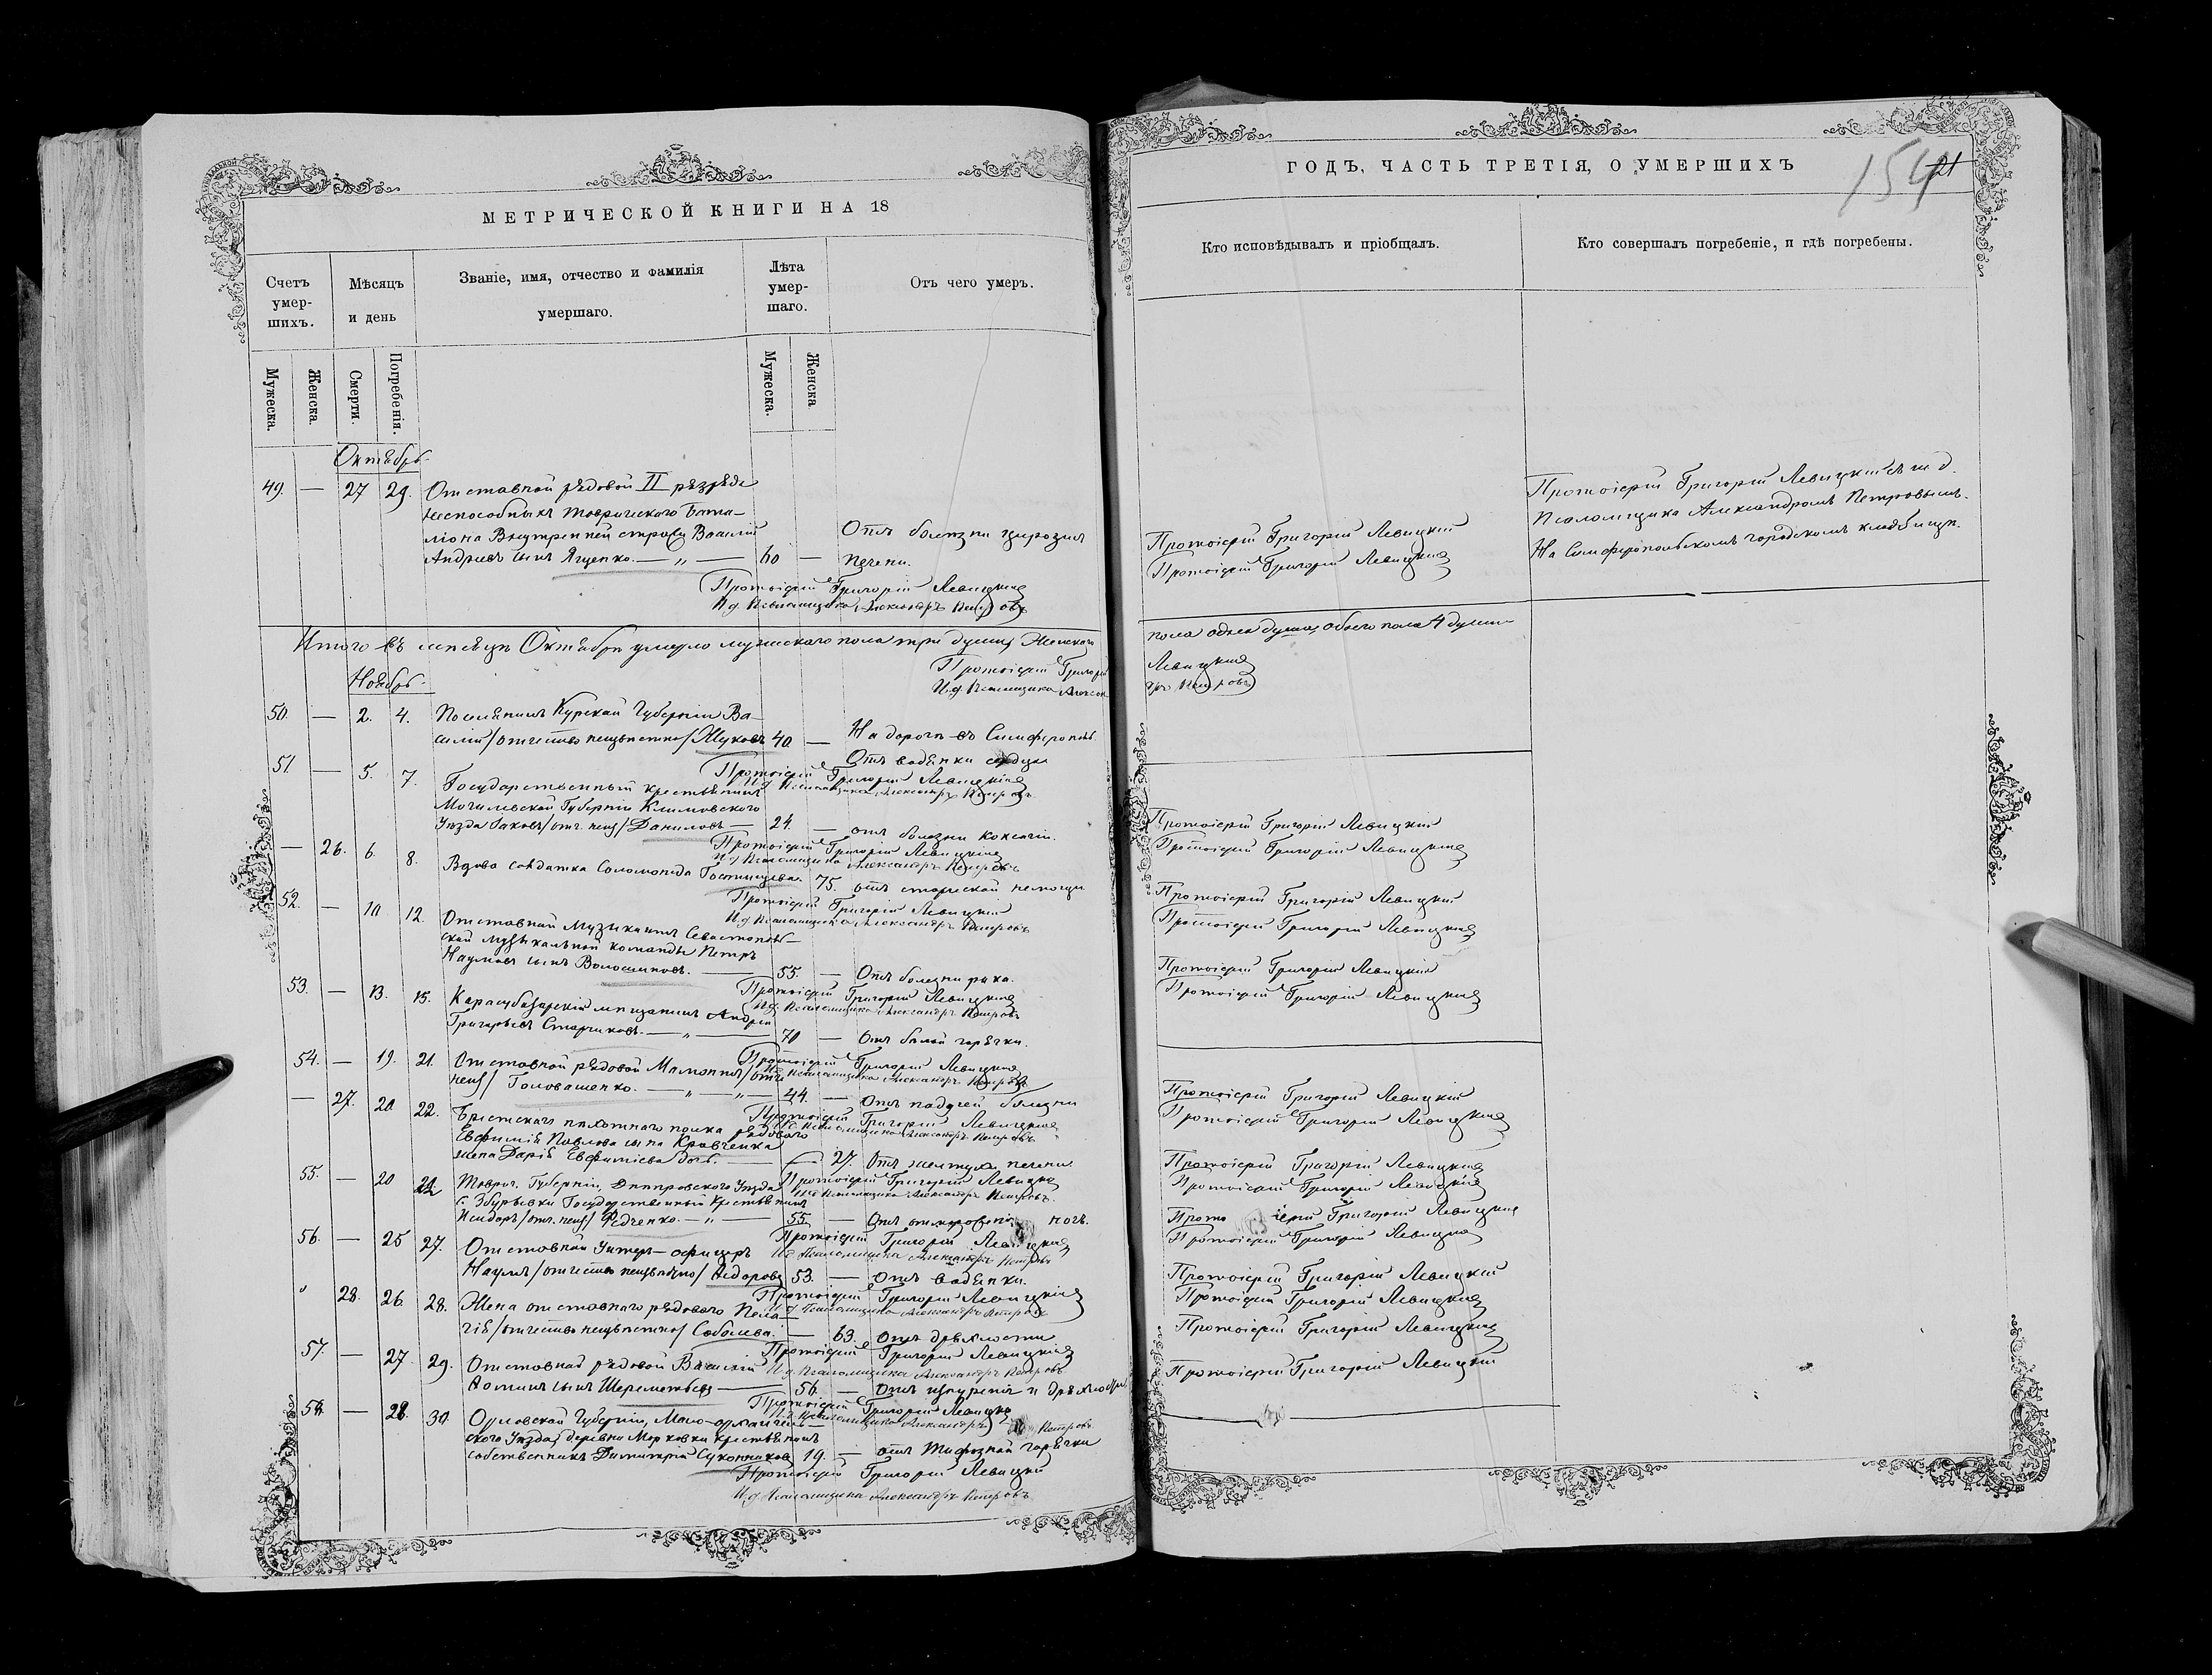 МЕТРИЧЕСКОЙ КНИГИ НА 18
Счетъ умер-
шихъ.
Мѣсяцъ
и день
Званіе, имя, отчество и фамилія
умершаго.
Лѣта
умер-
шаго.
Отъ чего умеръ.
Мужеска.
Женска.
Смерти.
Погребенія.
Мужеска.
Женска
Октябрь
49. — 27 29. Отставной рядовой II разряда
неспособныхъ Таврическаго Бата-
ліона Внутренней стражи Василій
Андреевъ сынъ Яценко. — „ — 60 —
Отъ болѣзни цирозиса
печени.
Протоіерей Григорій Левицкій
И.д. Псаломщика Александръ Петровъ
Итого въ мѣсяцѣ Октябрѣ умерло мужескаго пола три души, Женскаго
Протоіерей Григорій
И.д. Псаломщика Алексан
Ноябрь
50. — 2. 4. Поселянинъ Курской Губерніи Ва-
силій /отчество неизвѣстно/ Жуковъ 40 — На дорогѣ въ Симферополь
Отъ водянки сердца
Протоіерей Григорій Левицкій
И.д. Псаломщика Александръ Петровъ
51. — 5. 7. Государственный крестьянинъ
Могилевской Губерніи Климовскаго
Уѣзда Яковъ /отч. неиз/ Даниловъ — 24. — отъ болѣзни
Протоіерей Григорій Левицкій
И.д. Псаломщика Александръ Петровъ
— 26. 6. 8. Вдова солдатка Соломонида Гостищева. 75. отъ старческой немощи
Протоіерей Григорій Левицкій
И.д. Псаломщика Александръ Петровъ
52. — 10 12. Отставной музыкантъ Севастополь-
ской музыкальной команды Петръ
Наумовъ сынъ Волошиновъ. — 55. — Отъ болезни рака.
Протоіерей Григорій Левицкій
И.д. Псаломщика Александръ Петровъ
53. — 13. 15. Карасубазарскій мѣщанинъ Андрей
Григорьевъ Старчиковъ. — „ — 70 — Отъ бѣлой горячки.
Протоіерей Григорій Левицкій
И.д. Псаломщика Александръ Петровъ
54. — 19. 21. Отставной рядовой Мамонтъ /отч.
неиз/ Головашенко. — „ — „ — 44. — Отъ падучей болезни
Протоіерей Григорій Левицкій
И.д. Псаломщика Александръ Петровъ
— 27. 20 22. Брестскаго пѣхотнаго полка рядоваго
Евфимія Павлова сына Кравченка
жена Дарія Евфиміева дочь. — 27. Отъ желтухи печени
Протоіерей Григорій Левицкій
И.д. Псаломщика Александръ Петровъ
55. — 20 22 Таврич. Губерніи, Днѣпровскаго Уѣзда
с. Збурьевки Государственный Крестьянинъ
Исидоръ /отч. неиз/ Федченко. — „ — 55 — Отъ отмороженія ногъ.
Протоіерей Григорій Левицкій
И.д. Псаломщика Александръ Петровъ
56. — 25 27. Отставной Унтеръ-офицеръ
Наумъ /отчество неизвѣстно/ Ѳедоровъ 53. — Отъ водянки.
Протоіерей Григорій Левицкій
И.д. Псаломщика Александръ Петровъ
28. 26. 28. Жена отставнаго рядоваго Пела-
гія /отчество неизвѣстно/ Соболева. — 63. отъ дряхлости
Протоіерей Григорій Левицкій
И.д. Псаломщика Александръ Петровъ
57. — 27. 29. Отставной рядовой Василій
Ѳоминъ сынъ Шереметьевъ — 56. — Отъ изнуренія и дряхлости
Протоіерей Григорій Левицкій
И.д. Псаломщика Александръ Петровъ
58. — 28. 30. Орловской Губерніи, Мало-архангель-
скаго Уѣзда, деревни Марковки крестьянинъ
собственникъ Димитрій Сухотиковъ 19. — отъ Тифозной горячки
Протоіерей Григорій Левицкій
И.д. Псаломщика Александръ Петровъ
ГОДЪ, ЧАСТЬ ТРЕТІЯ, О УМЕРШИХЪ
154
21
Кто исповѣдывалъ и пріобщалъ.
Кто совершалъ погребеніе, и гдѣ погребены.
Протоіерей Григорій Левицкій
Протоіерей Григорій Левицкій
Протоіерей Григорій Левицкій съ и. д.
Псаломщика Александромъ Петровымъ.
На Симферопольскомъ городскомъ кладбищѣ.
пола одна душа, обоего пола 4 души
Левицкій
дръ Петровъ
Протоіерей Григорій Левицкій
Протоіерей Григорій Левицкій
Протоіерей Григорій Левицкій
Протоіерей Григорій Левицкій
Протоіерей Григорій Левицкій
Протоіерей Григорій Левицкій
Протоіерей Григорій Левицкій
Протоіерей Григорій Левицкій
Протоіерей Григорій Левицкій
Протоіерей Григорій Левицкій
Прото іерей Григорій Левицкій
Протоіерей Григорій Левицкій
Протоіерей Григорій Левицкій
Протоіерей Григорій Левицкій
Протоіерей Григорій Левицкій
Протоіерей Григорій Левицкій